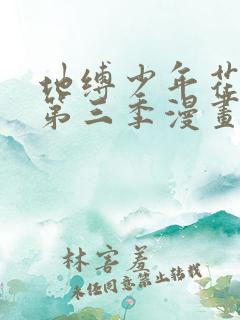 地缚少年花
第三季漫画
林害羞
未经同意禁止转载